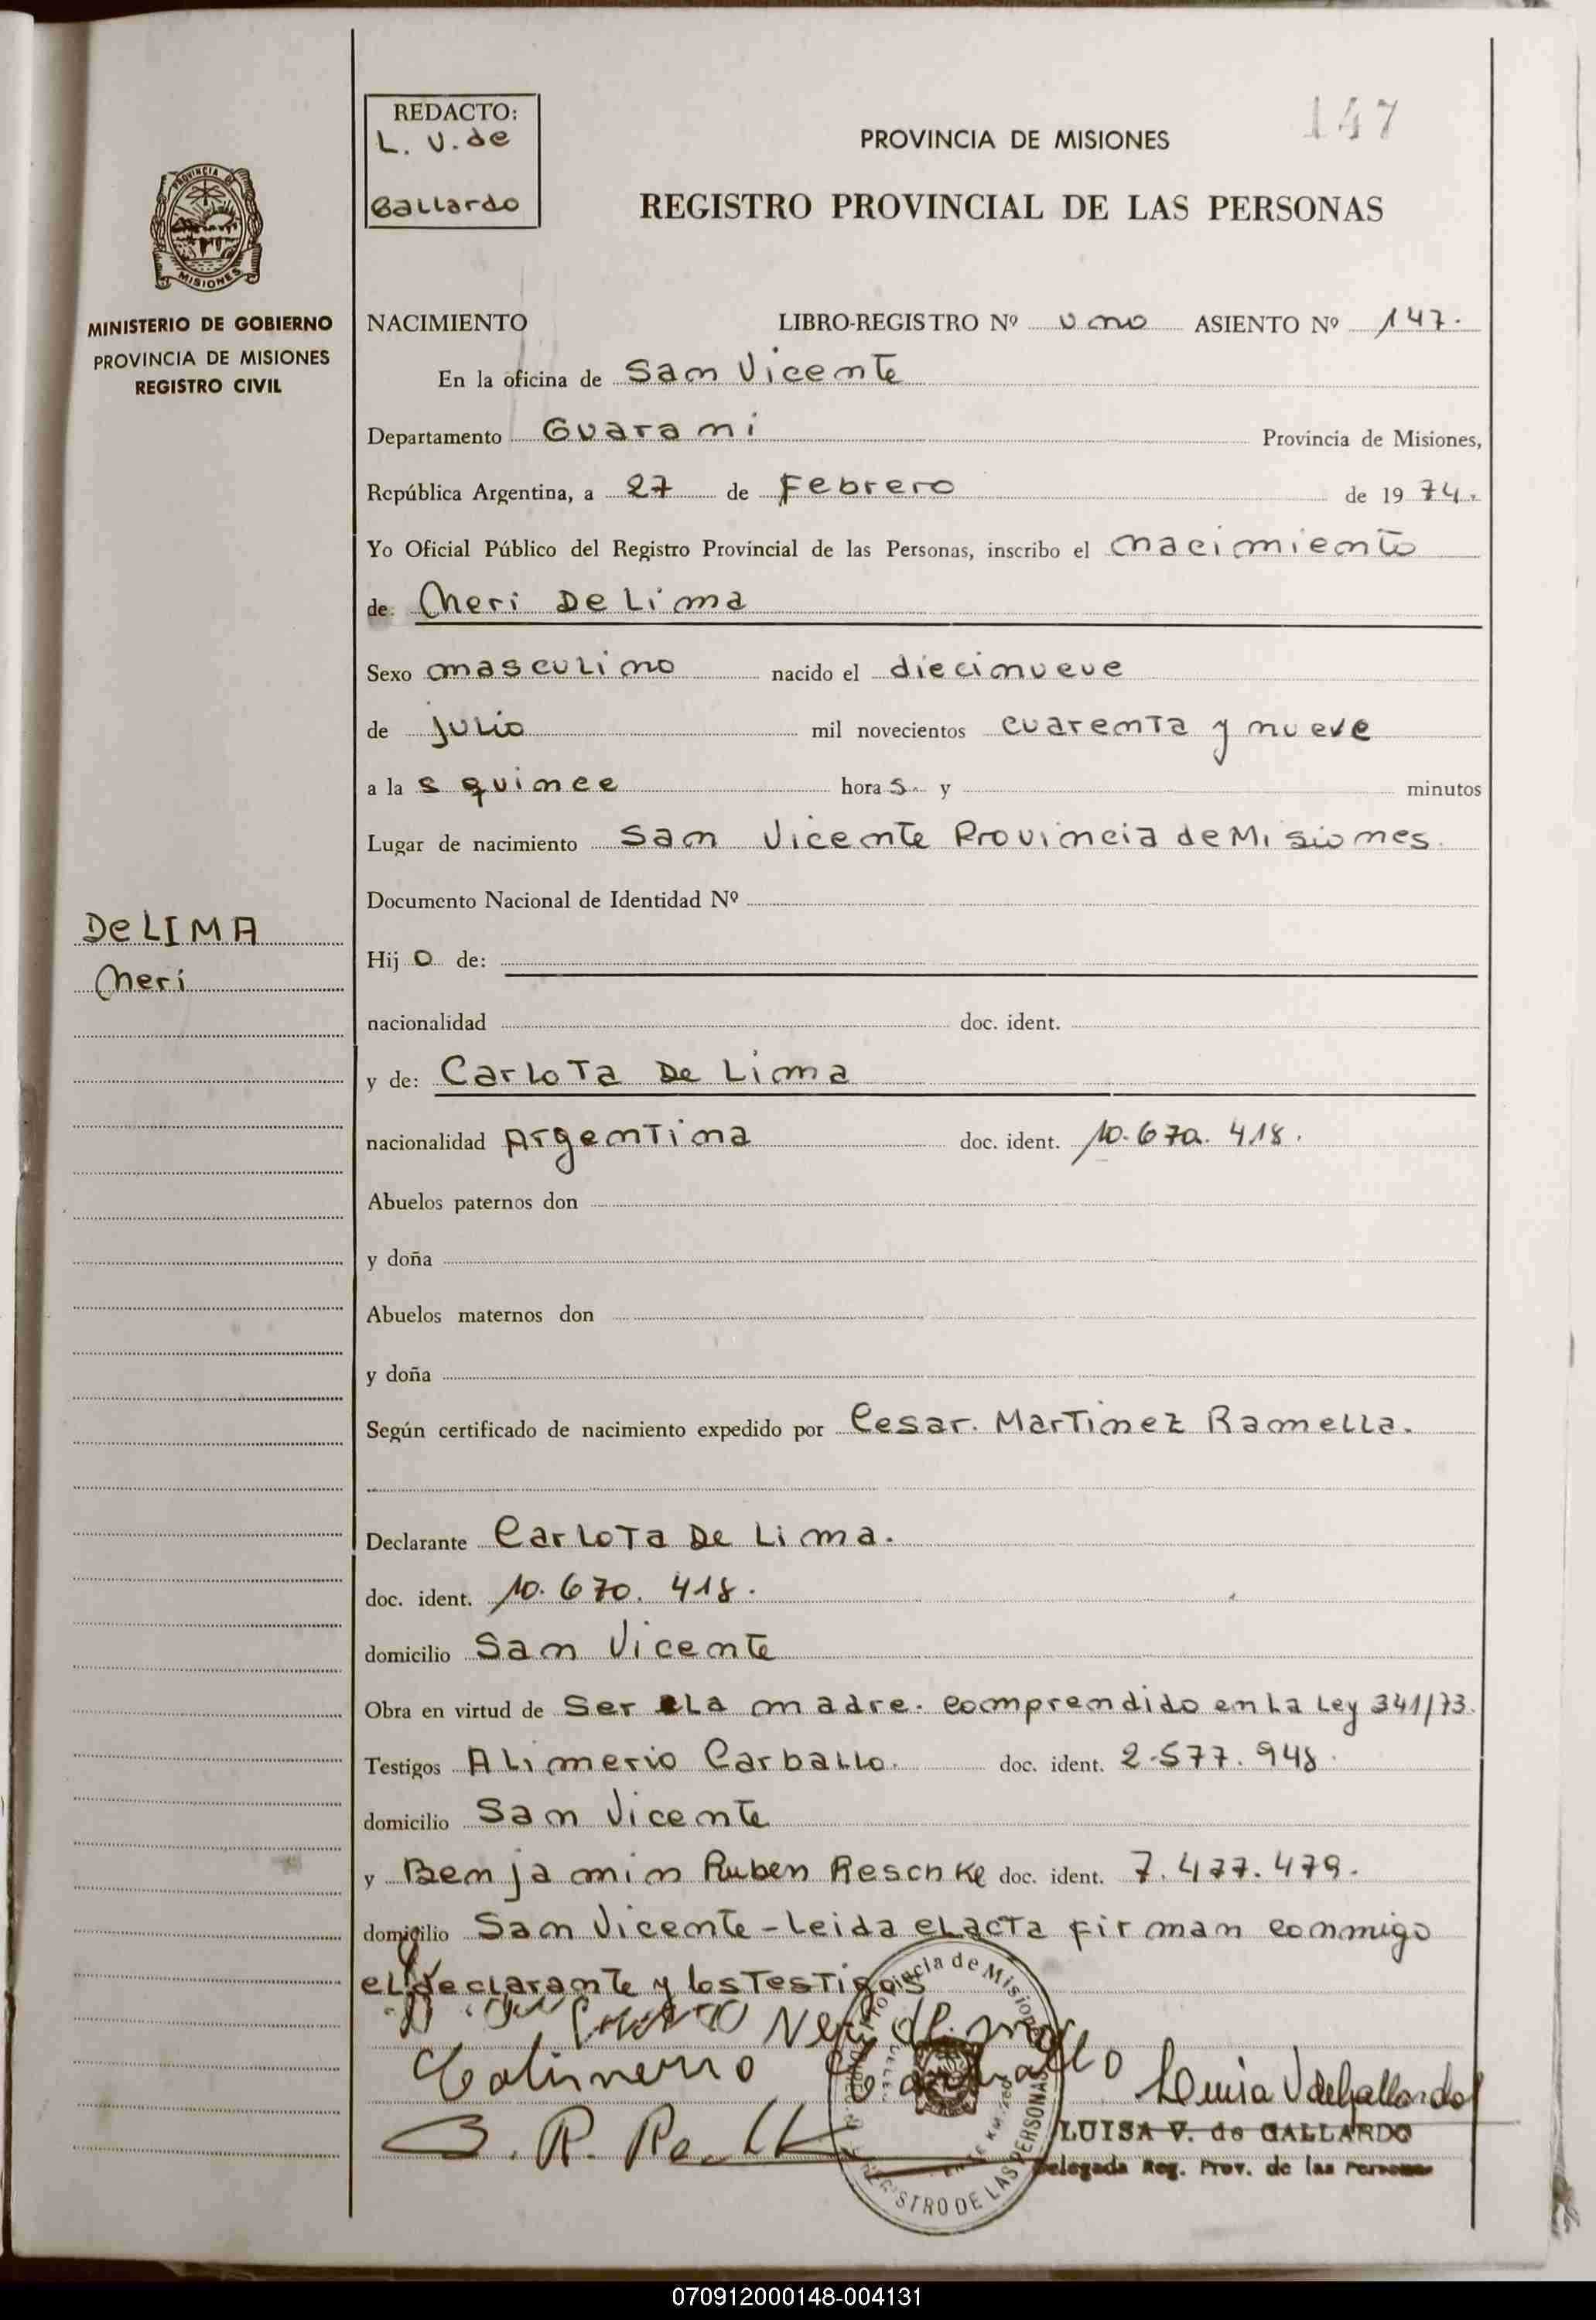 147
REDACTO:
L. V. de
Gallardo
PROVINCIA DE MISIONES
REGISTRO PROVINCIAL DE LAS PERSONAS
PROVINCIA DE
MISIONES
MINISTERIO DE GOBIERNO
PROVINCIA DE MISIONES
REGISTRO CIVIL
NACIMIENTO LIBRO-REGISTRO Nº uno ASIENTO Nº 147.
En la oficina de San Vicente
Departamento Guarani Provincia de Misiones,
República Argentina, a 27 de Febrero de 1974.
Yo Oficial Público del Registro Provincial de las Personas, inscribo el nacimiento
de: Neri De Lima
Sexo masculino nacido el diecinueve
de julio mil novecientos cuarenta y nueve
a las quince horas y minutos
Lugar de nacimiento San Vicente Provincia de Misiones.
Documento Nacional de Identidad Nº
De LIMA
Neri
Hijo de:
nacionalidad doc. ident.
y de: Carlota De Lima
nacionalidad Argentina doc. ident. 10.670.418.
Abuelos paternos don
y doña
Abuelos maternos don
y doña
Según certificado de nacimiento expedido por Cesar. Martinez Ramella.
Declarante Carlota De Lima.
doc. ident. 10.670.418.
domicilio San Vicente
Obra en virtud de Ser La madre. comprendido en La Ley 341/73.
Testigos Alimerio Carballo. doc. ident. 2.577.948.
domicilio San Vicente
y Benjamin Ruben Reschke doc. ident. 7.477.479.
domicilio San Vicente - Leida el acta firman conmigo
el declarante y los Testigos
Carballo
Luisa V de Gallardo
B. R.
LUISA V. de GALLARDO
Delegada Reg. Prov. de las Personas
Provincia de Misiones
REGISTRO DE LAS PERSONAS
070912000148-004131